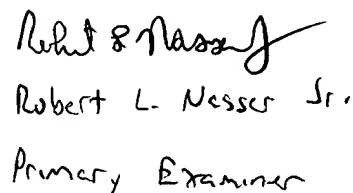 Robert L Nasser Jr
Robert L. Nasser Jr.
Primary Examiner